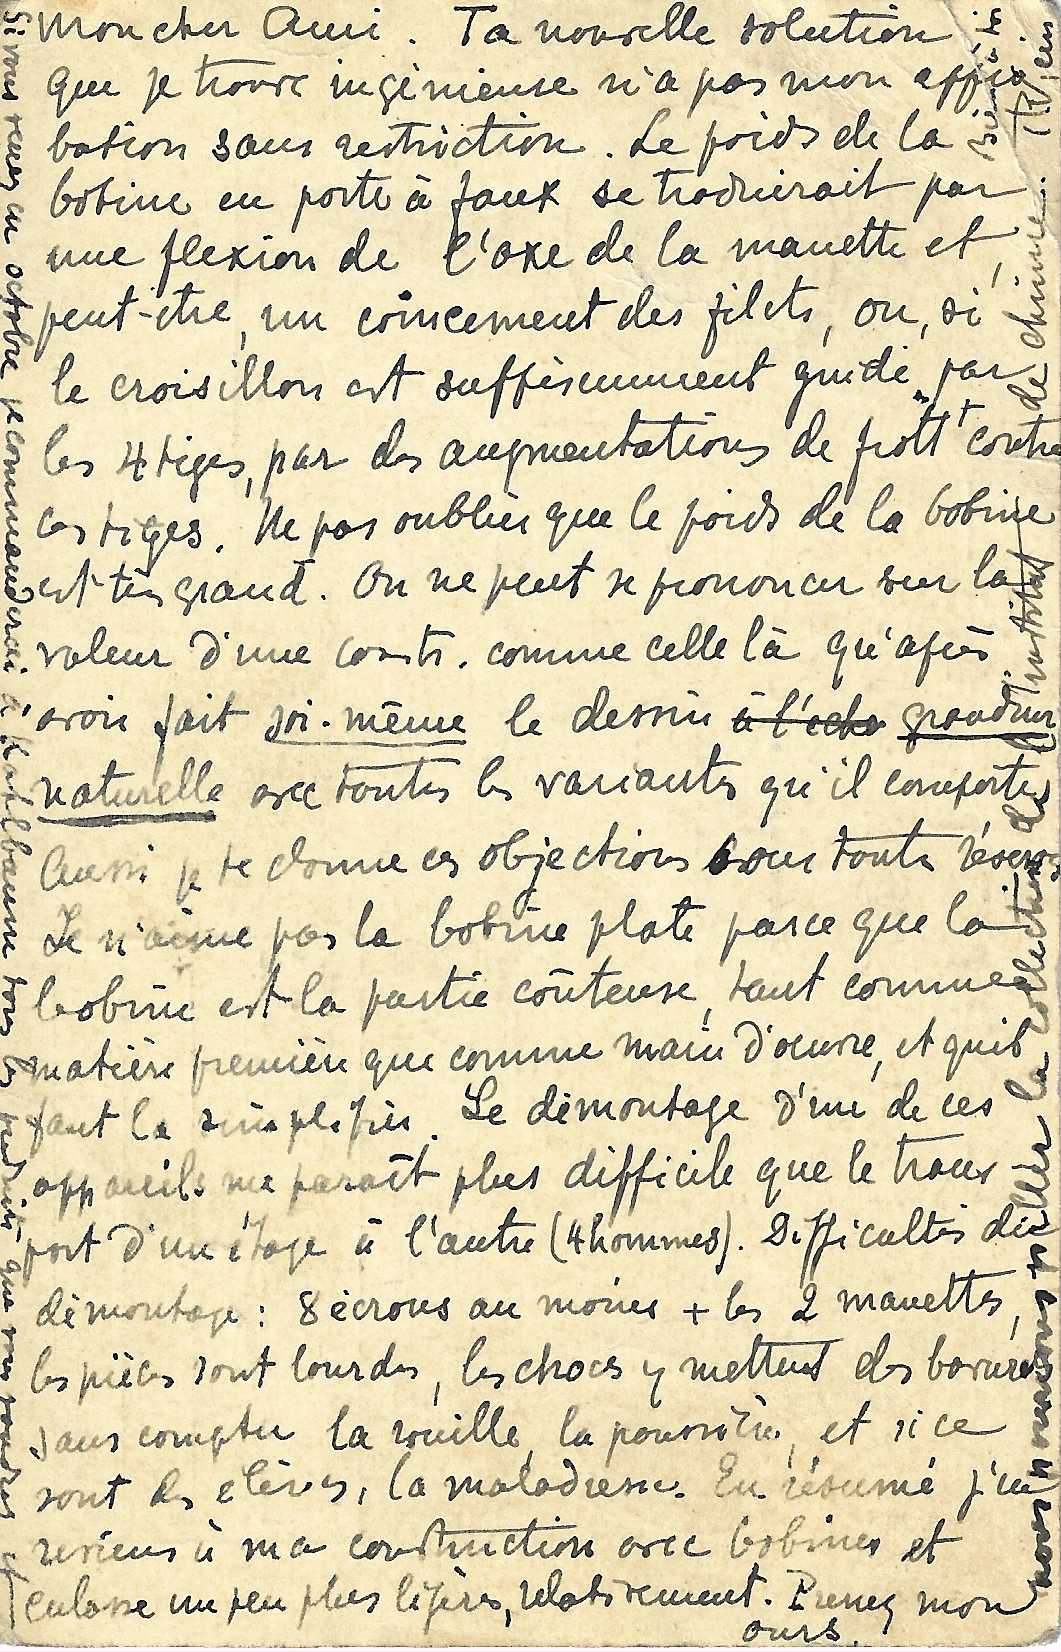 Mon cher Ami. Ta nouvelle solution
que je trouve ingénieuse n'a pas mon appro
bation sans restriction. Le poids de la
bobine en porte à faux se traduirait par
une flexion de l'axe de la manette et,
peut-être, un coincement des filets, ou, si
le croisillon est suffisamment guidé par
les 4 tiges, par des augmentations de frottt contre
ces tiges. Ne pas oublier que le poids de la bobine
est très grand. On ne peut se prononcer sur la
valeur d'une constr. comme celle là qu'après
avoir fait soi-même le dessin à l'eche grandeur
naturelle avec toutes les variantes qu'il comporte
Aussi je te donne ces objections sous toute réserve
Je n'aime pas la bobine plate parce que la
bobine est la partie coûteuse, tant comme
matière première que comme main d'oeuvre, et qu'il
faut la simplifier. Le démontage d'un de ces
appareils me paraît plus difficile que le trans
port d'un étage à l'autre (4 hommes). Difficultés du
démontage : 8 écrous au moins + les 2 manettes,
les pièces sont lourdes, les chocs y mettent des bavures
sans compter la rouille, la poussière, et si ce
sont des élèves, la maladresse. En résumé j'en
reviens à ma construction avec bobines et
culasse un peu plus légères, relativement. Prenez mon
ours.
nous piller la collection de l'Institut de chimie.
Si vous venez en octobre je commanderai à Kahlbaum tous les produits que vous voudrez et